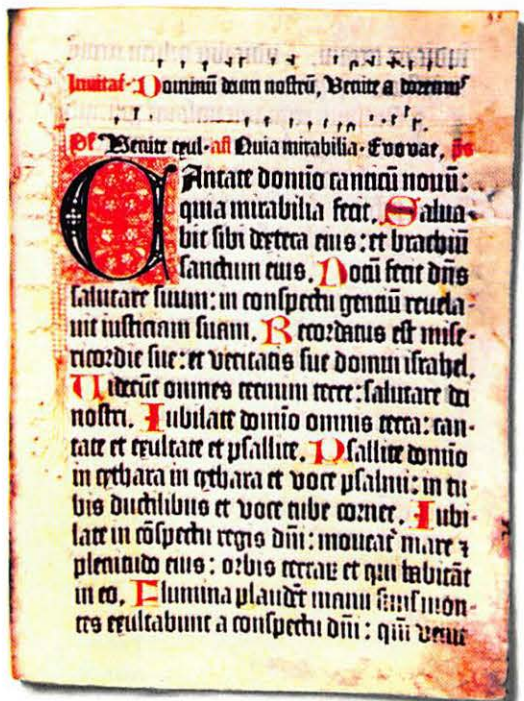 Inuitat· Dominū deum nostrū, Venite a doremꝰ
Ps Venite exul· añ Quia mirabilia· Evovae, ps
CAntate domīo canticū nouū:
quia mirabilia fecit. Salua-
bit sibi dextera eius: et brachiū
sanctum eius. Notū fecit dn̄s
salutare suum: in conspectu gentiū reuela-
uit iusticiam suam. Recordatus est mise-
ricordie sue: et veritatis sue domui israhel.
Viderūt omnes termini terre: salutare dei
nostri. Iubilate domīo omnis terra: can-
tate et exultate et psallite. Psallite domīo
in cythara in cythara et voce psalmi: in tu-
bis ductilibus et voce tube cornee. Iubi-
late in cōspectu regis dn̄i: moueat mare ⁊
plenitudo eius: orbis terraꝝ et qui habitāt
in eo. Flumina plaudēt manu simul mon-
tes exultabunt a conspectu dn̄i: qm̄ venit